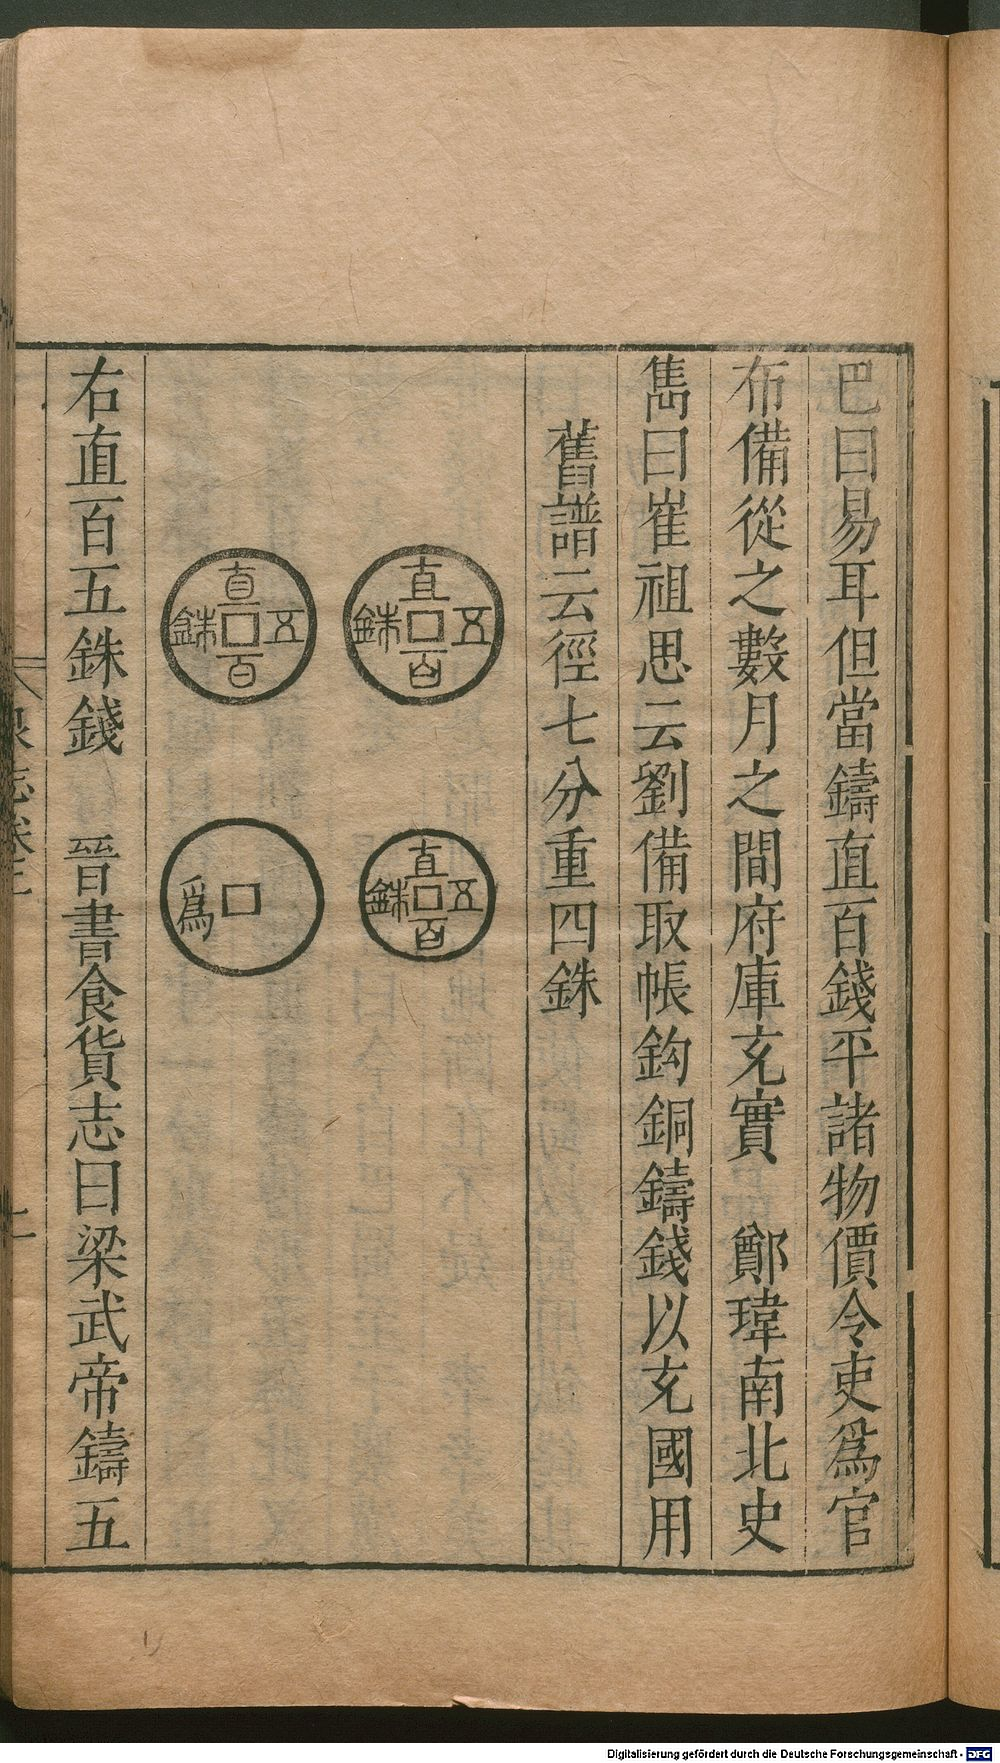 巴曰易耳但當鑄直百錢平諸物價令吏爲官
布備從之數月之間府庫充實　鄭瑋南北史
雋曰崔祖思云劉備取帳鈎銅鑄錢以充國用
舊譜云徑七分重四銖
直百五銖
直百五銖
直百五銖
爲
右直百五銖錢　晉書食貨志曰梁武帝鑄五
泉志卷三
Digitalisierung gefördert durch die Deutsche Forschungsgemeinschaft - DFG